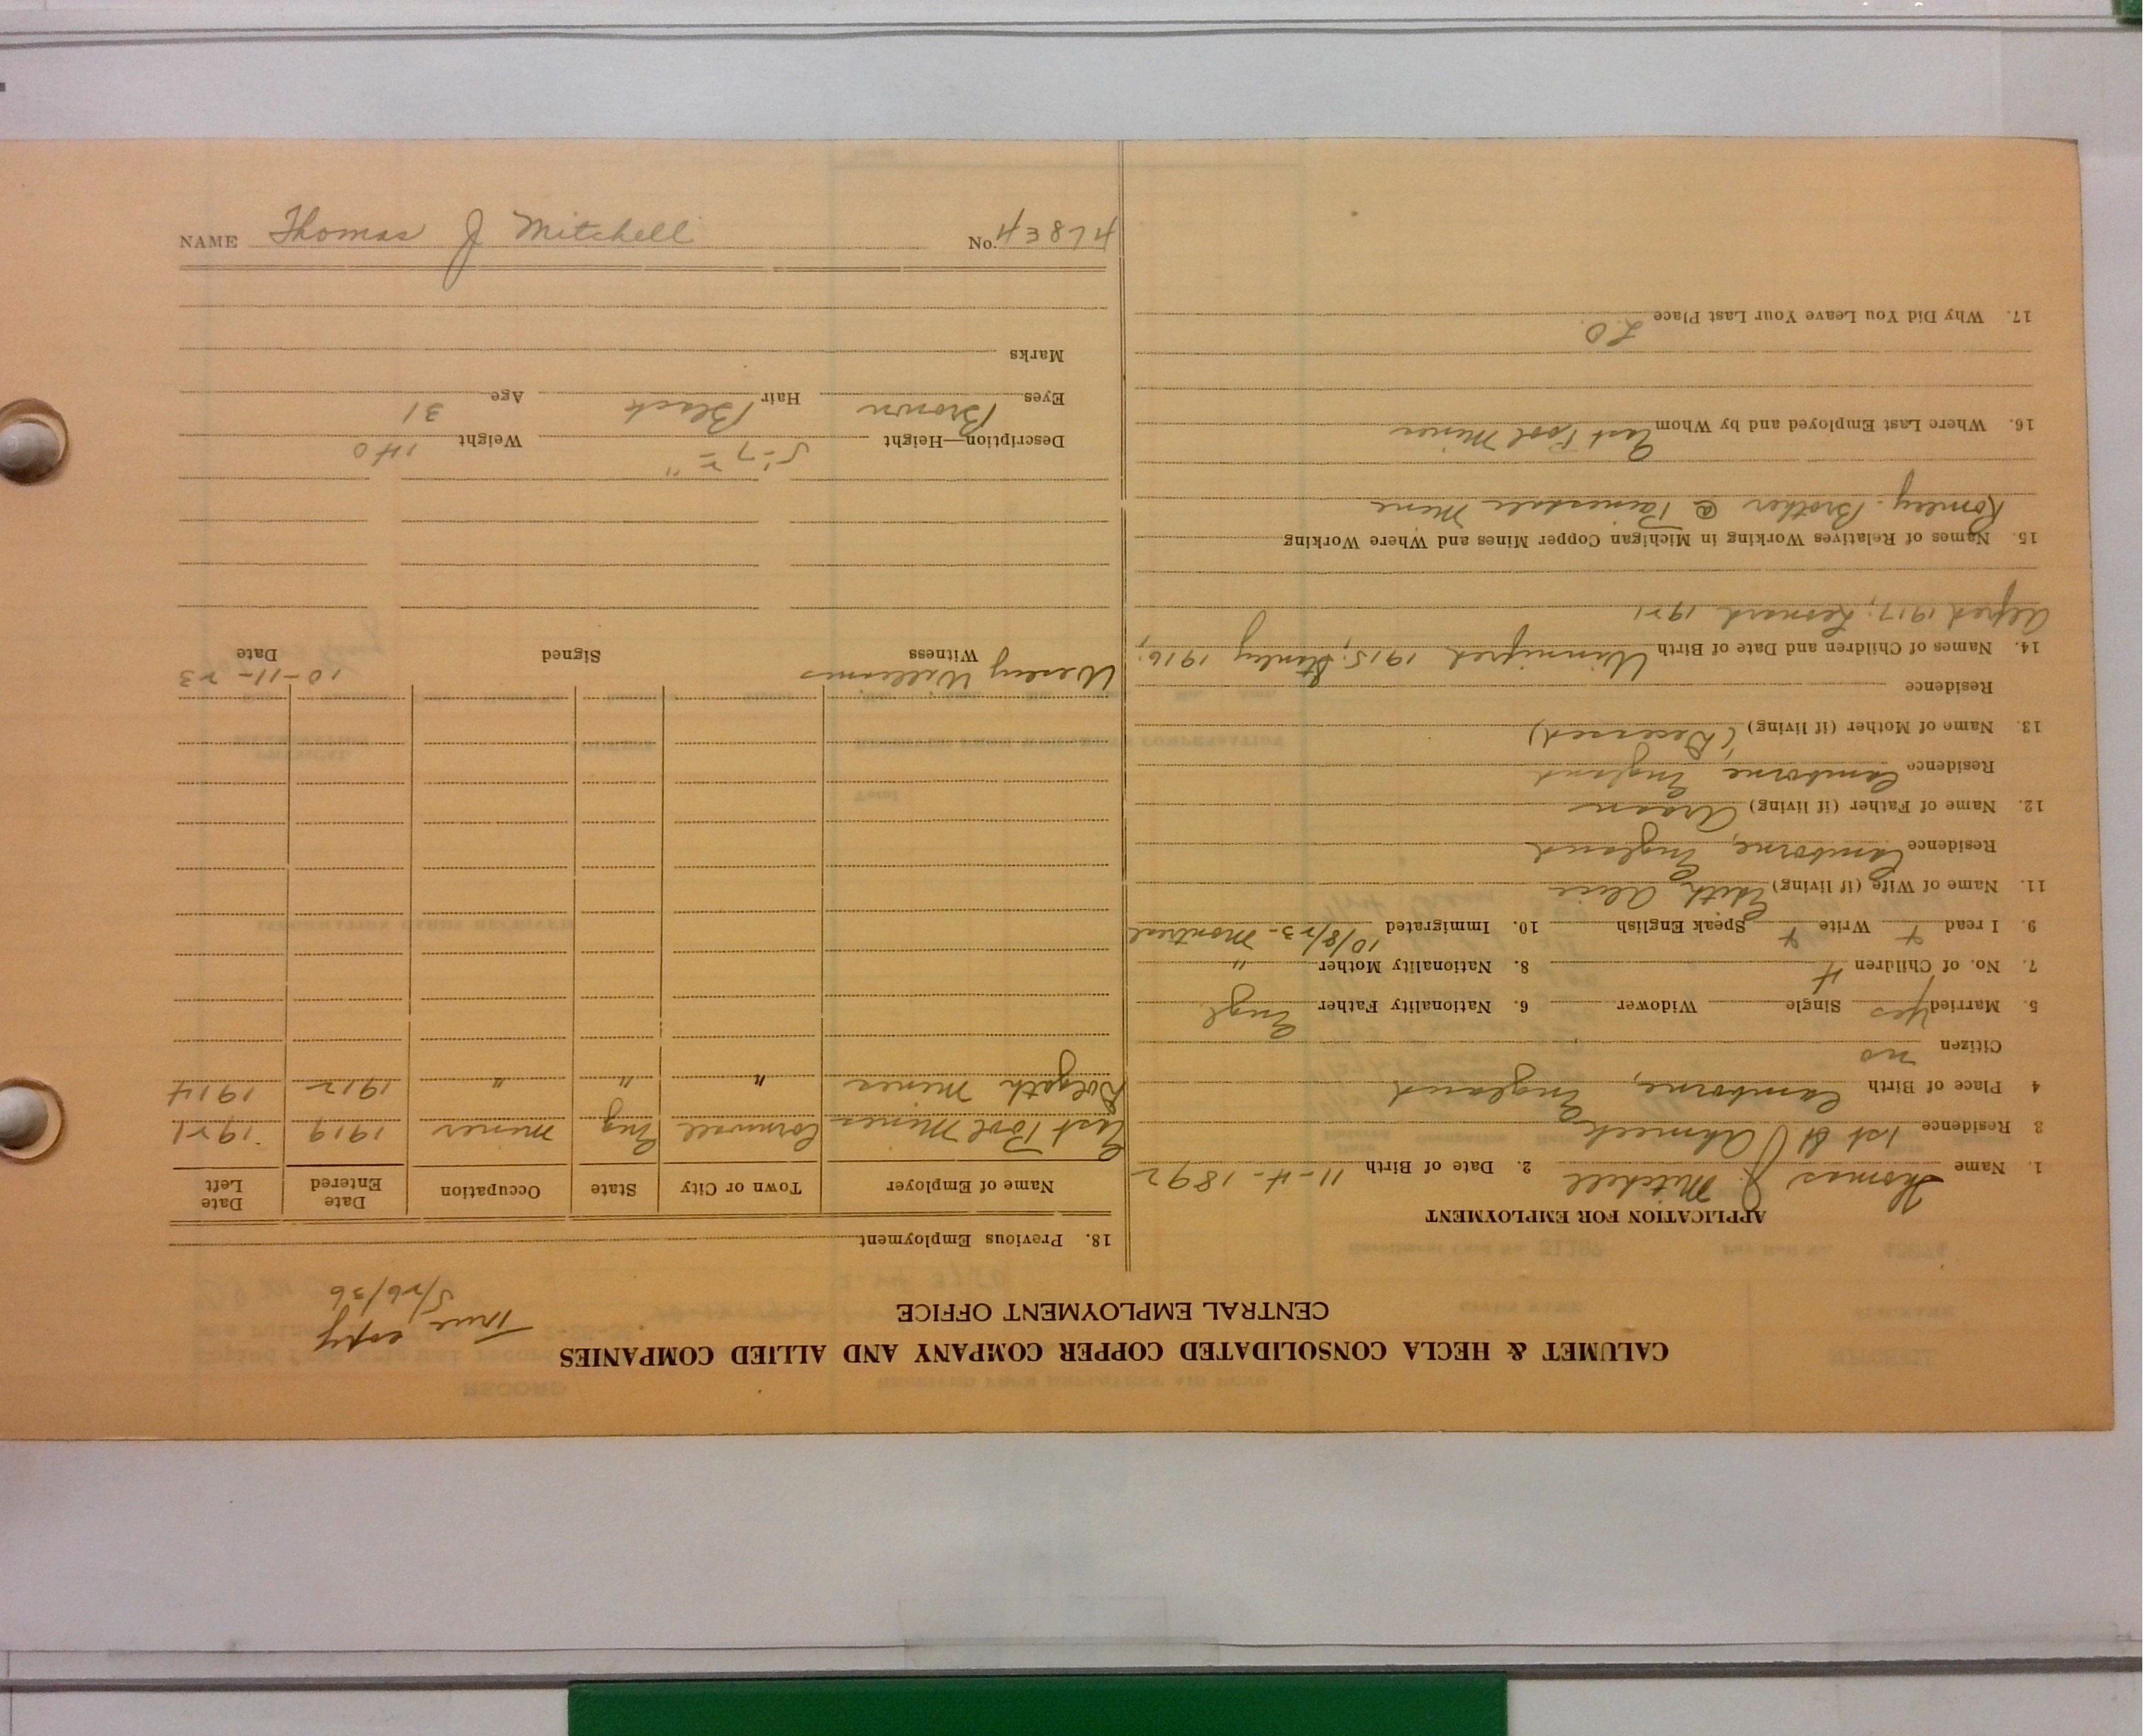 CALUMET & HECLA CONSOLIDATED COPPER COMPANY AND ALLIED COMPANIES
CENTRAL EMPLOYMENT OFFICE
True copy
5/26/36
APPLICATION FOR EMPLOYMENT
1. Name Thomas J. Mitchell 2. Date of Birth 11-4-1892
3 Residence 1st St Ahmeek
4 Place of Birth Camborne, England
Citizen no
5. Married Yes Single Widower 6. Nationality Father Engl.
7. No. of Children 4 8. Nationality Mother "
9. I read + Write + Speak English 10. Immigrated 10/8/23- Montreal
11. Name of Wife (if living) Edith Alice
Residence Camborne, England
12. Name of Father (if living)
Residence Camborne England
13. Name of Mother (if living) (Deceased)
Residence
14. Names of Children and Date of Birth Winnifred 1915; Stanley 1916;
Alfred 1917; Leonard 1921
15. Names of Relatives Working in Michigan Copper Mines and Where Working
Brother @ Mine
16. Where Last Employed and by Whom East Pool Mines
17. Why Did You Leave Your Last Place L.O.
18. Previous Employment
Name of Employer Town or City State Occupation Date Entered Date Left
East Pool Mines Cornwall Eng miner 1919 1921
Dolcoath Mines " " " 1912 1914
Wesley Williams 10-11-23
Witness Signed Date
Description—Height 5'-7 Weight 140
Eyes Brown Hair Black Age 31
Marks
NAME Thomas J Mitchell No. 43874